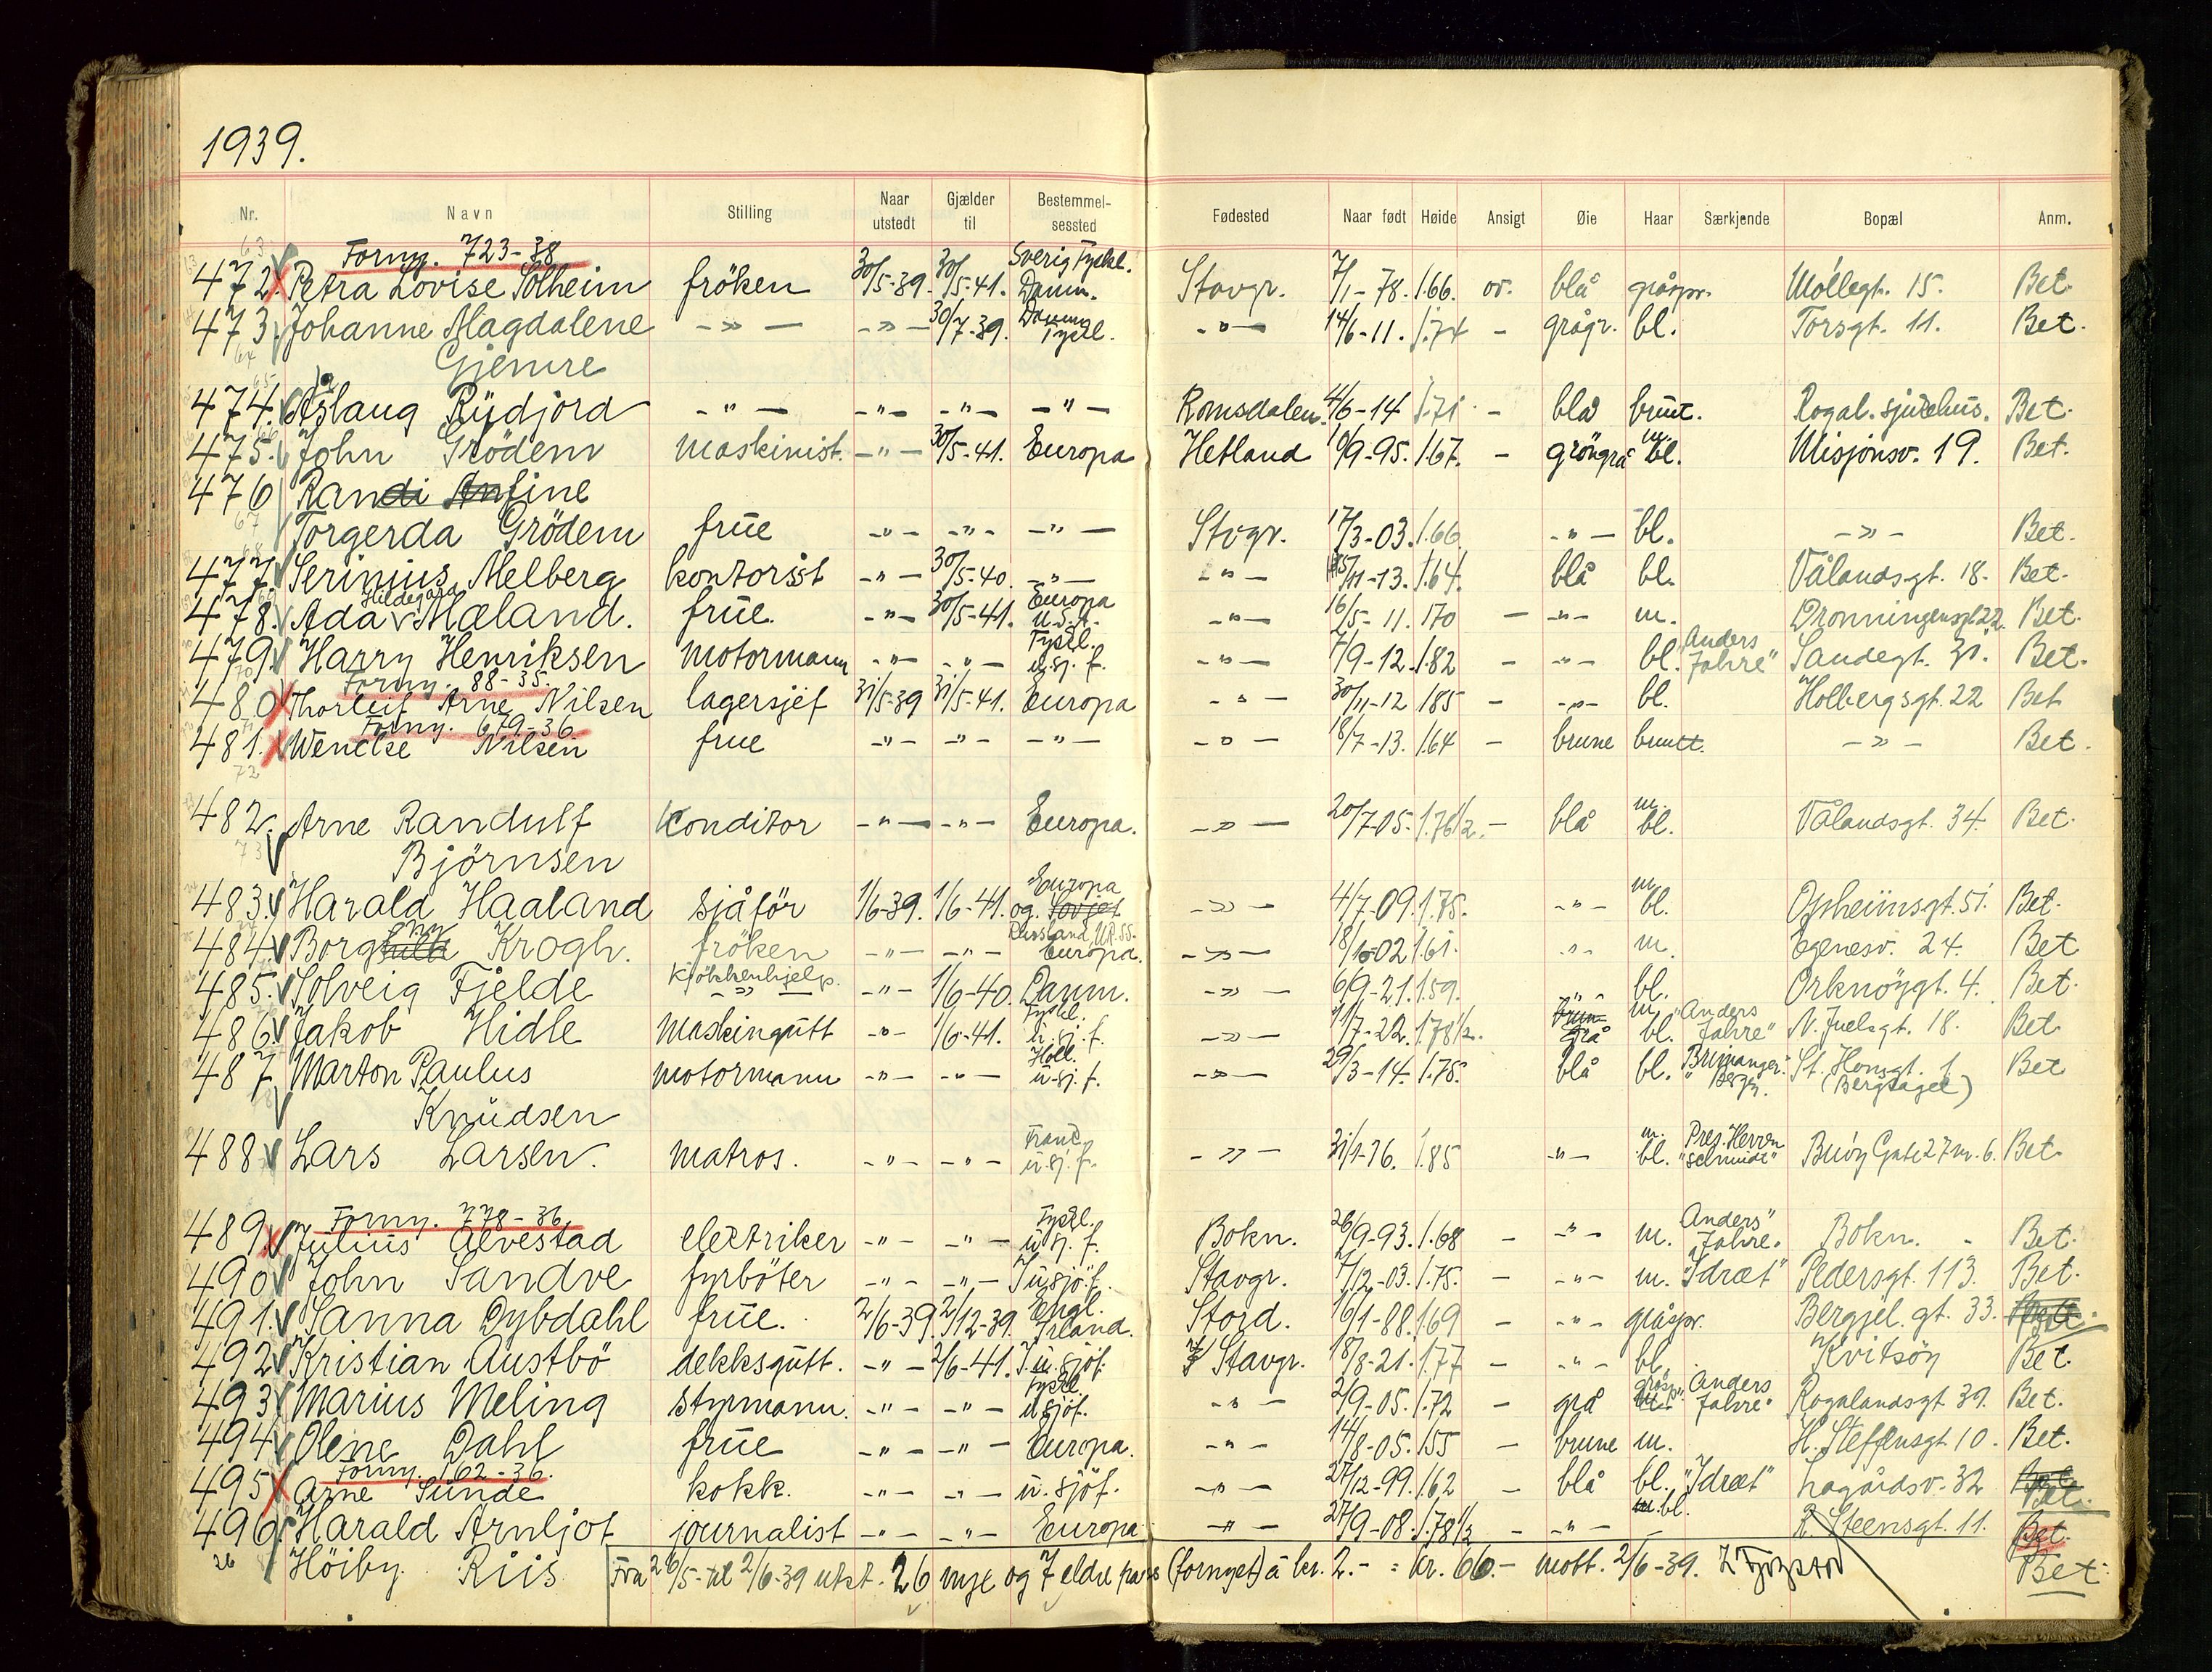 1939.
Nr. Navn Stilling Naar utstedt Gjælder til Bestemmelsessted Fødested Naar født Høide Ansigt Øie Haar Særkjende Bopæl Anm.
Forny. 723-38 Sverig Tyskl.
472. Petra Lovise Solheim fröken 30/5-39. 30/5-41. Danm. Stavgr. 7/1-78. 1.66. ov. blå gråspr. Møllegt. 15. Bet.
473. Johanne Magdalene -"- -"- 30/7-39. Danm. Tyskl. -"- 14/6-11. 1.74 - grågr. bl. Torsgt. 11. Bet.
Gjemre
474. Åslaug Rydjord -"- -"- -"- -"- Romsdalen. 4/6-14 1.71 - blå brunt. Rogal. sjukehus. Bet.
475. John Grödem maskinist. -"- 30/5-41. Europa Hetland 10/9-95. 1.67. - gröngrå m. bl. Misjonsv. 19. Bet.
476 Randi Anfine
Torgerda Grödem frue -"- -"- -"- Stvgr. 17/3-03. 1.66 -"- bl. -"- Bet.
477. Serinius Melberg kontorist -"- 30/5-40. -"- -"- 15/11-13. 1.64. blå bl. Vålandsgt. 18. Bet.
478. Ada Hildegard Mæland. frue. -"- 30/5-41. Europa U.S.A. -"- 16/5-11. 170 - -"- m. Dronningensgt 22. Bet.
479. Harry Henriksen motormann -"- -"- Tyskl. u.sj.f. -"- 7/9-12. 1.82 - -"- bl. "Anders Jahre" Sandegt. 31. Bet.
Forny. 88-35.
480 Thorleif Arne Nilsen lagersjef 31/5-39 31/5-41. Europa -"- 30/11-12 185 - -"- bl. Holbergsgt. 22 Bet
Forny. 679-36
481. Wencke Nilsen frue -"- -"- -"- -"- 18/7-13. 1.64 - brune brunt. -"- Bet.
482. Arne Randulf Konditor -"- -"- Europa. -"- 20/7-05. 1.76½. - blå m. bl. Vålandsgt. 34. Bet.
Björnsen
483. Harald Haaland sjåför 1/6-39. 1/6-41. Europa og. Sovjet Russland, UR.SS. -"- 4/7-09. 1.75. -"- m bl. Opheimsgt. 51. Bet.
484. Borghild Krogh. fröken -"- -"- Europa. -"- 18/10-02 1.61. -"- m. Egenesv. 24. Bet
485. Solveig Fjelde Kjökkenhjelp. -"- -"- 1/6-40. Danm. -"- 6/9-21. 1.59. -"- bl. Orknöygt. 4. Bet.
486. Jakob Hidle maskingutt -"- 1/6-41. Tyskl. u.sj.f. -"- 1/7-22. 1.78½. brun grå m. bl. "Anders Jahre" N. Juelsgt. 18. Bet
487. Marton Paulus motormann -"- -"- Holl. u.sj.f. -"- 29/3-14. 1.75. blå bl. "Brimanger" Berg. St. Hansgt. 1 (Bergsagel) Bet
Knudsen
488 Lars Larsen. matros. -"- -"- Frank. u.sj.f. -"- 31/1-76. 1.85 -"- m. bl. "Pres. Herren Schmidt" Buöy Gate 27 nr. 6. Bet.
Forny. 778-36.
489. Julius Alvestad elektriker -"- -"- Tyskl. u.sj.f. Bokn. 26/9-93. 1.68 - -"- m. "Anders Jahre" Bokn. Bet.
490 John Sandve fyrböter -"- -"- I u.sjö.f. Stavgr. 7/12-03. 1.75. - -"- m. "Idræt" Pedersgt. 113. Bet.
491. Sanna Dybdahl frue. 2/6-39. 2/12-39. Engl. Irland. Stord. 16/1-88. 1.69 - -"- gråspr. Bergjel. gt. 33. Bet.
492 Kristian Austbö dekksgutt. -"- 2/6-41. I.u.sjöf. Stavgr. 18/8-21. 1.77 - -"- bl. Kvitsöy Bet.
493 Marius Meling styrmann. -"- -"- Tyskl. u.sjöf. -"- 2/9-05. 1.72 - grå gråsp. "Anders Jahre" Rogalandsgt 39. Bet.
494 Olene Dahl frue -"- -"- Europa. -"- 14/8-05. 1.55 - brune m. H. Steffensgt 10. Bet.
Forny. 162-36.
495 Arne Sunde kokk. -"- -"- u.sjöf. -"- 27/12-99. 1.62 - blå bl. "Idræt" Lagårdsv. 32 Bet.
496. Harald Arnljot journalist -"- -"- Europa -"- 27/9-08. 1.78½ - -"- m. bl. R. Steensgt. 11. Bet.
26 Höiby Riis Fra 26/5- til 2/6-39 utst. 26 nye og 7 eldre pass (fornyet) á kr. 2.- = kr. 66.- mott. 2/6-39. Bet.